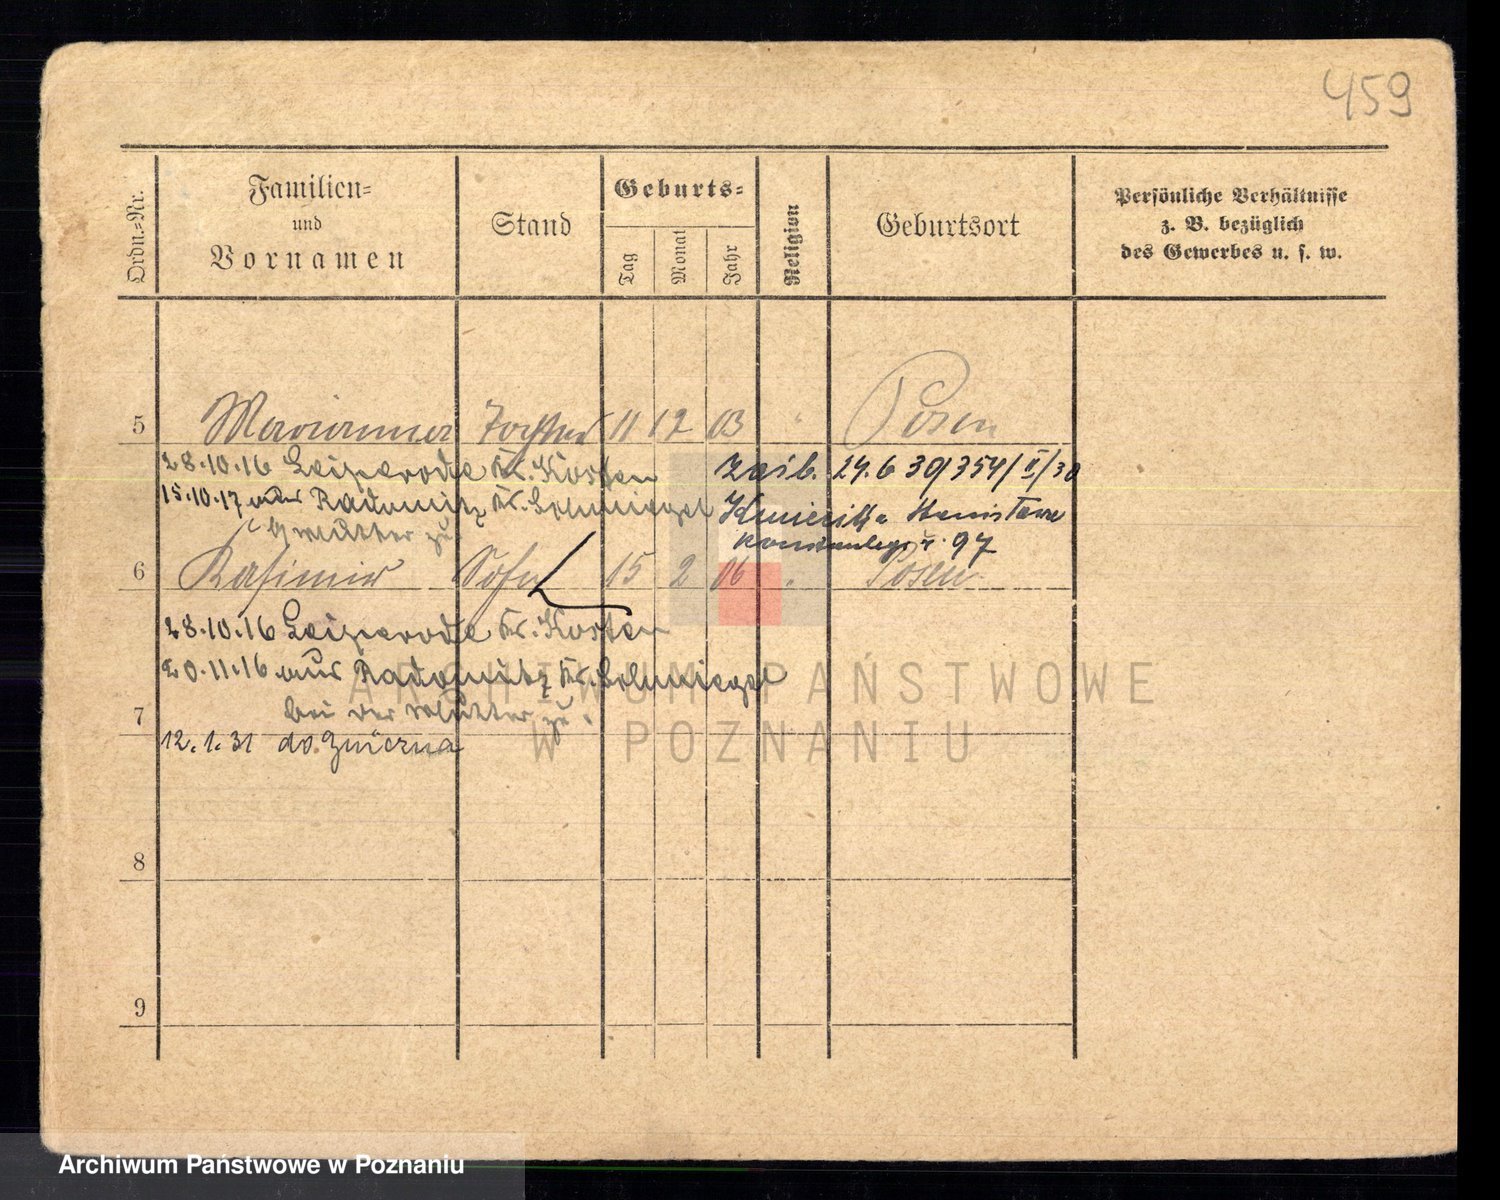 459
Ordn.-Nr.
Familien-
und
Vornamen
Stand
Geburts-
Tag
Monat
Jahr
Religion
Geburtsort
Persönliche Verhältnisse
z. B. bezüglich
des Gewerbes u. s. w.
5 Marianna Tochter 11 12 03 " Posen
28.10.16 Leiperode Kr. Kosten
zaśb. 24.6 30/354/II/30
15.10.17 aus Radomitz Kr. Schmiegel
Stanisław
z. Mutter zu
97
6 Kasimir Sohn 15 2 06 " Posen
28.10.16 Leiperode Kr. Kosten
20.11.16 aus Radomitz Kr. Schmiegel
bei der Mutter zu.
7
12.1.31 do Gniezna
8
9
ARCHIWUM PAŃSTWOWE
W POZNANIU
Archiwum Państwowe w Poznaniu